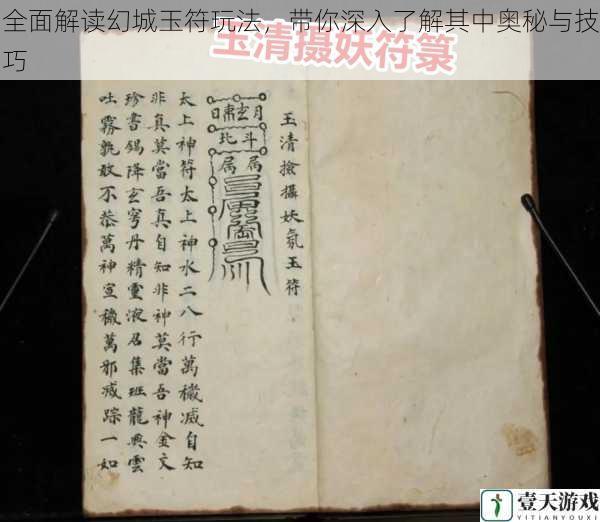 全面解读幻城玉符玩法，带你深入了解其中奥秘与技
巧
玉清摄妖符箓
玉清撿攝妖氛玉符
日肅玄月
北斗
局局
太上神符太上神水二八行萬穢滅自知
非真莫當吾真自知非神莫當吾神金文
珍書錫降玄穹丹精靈液召集班龍興雲
吐霧孰敢不恭萬神宣穢萬邪滅踪一如
壹天游戏
YITIANYOUXI